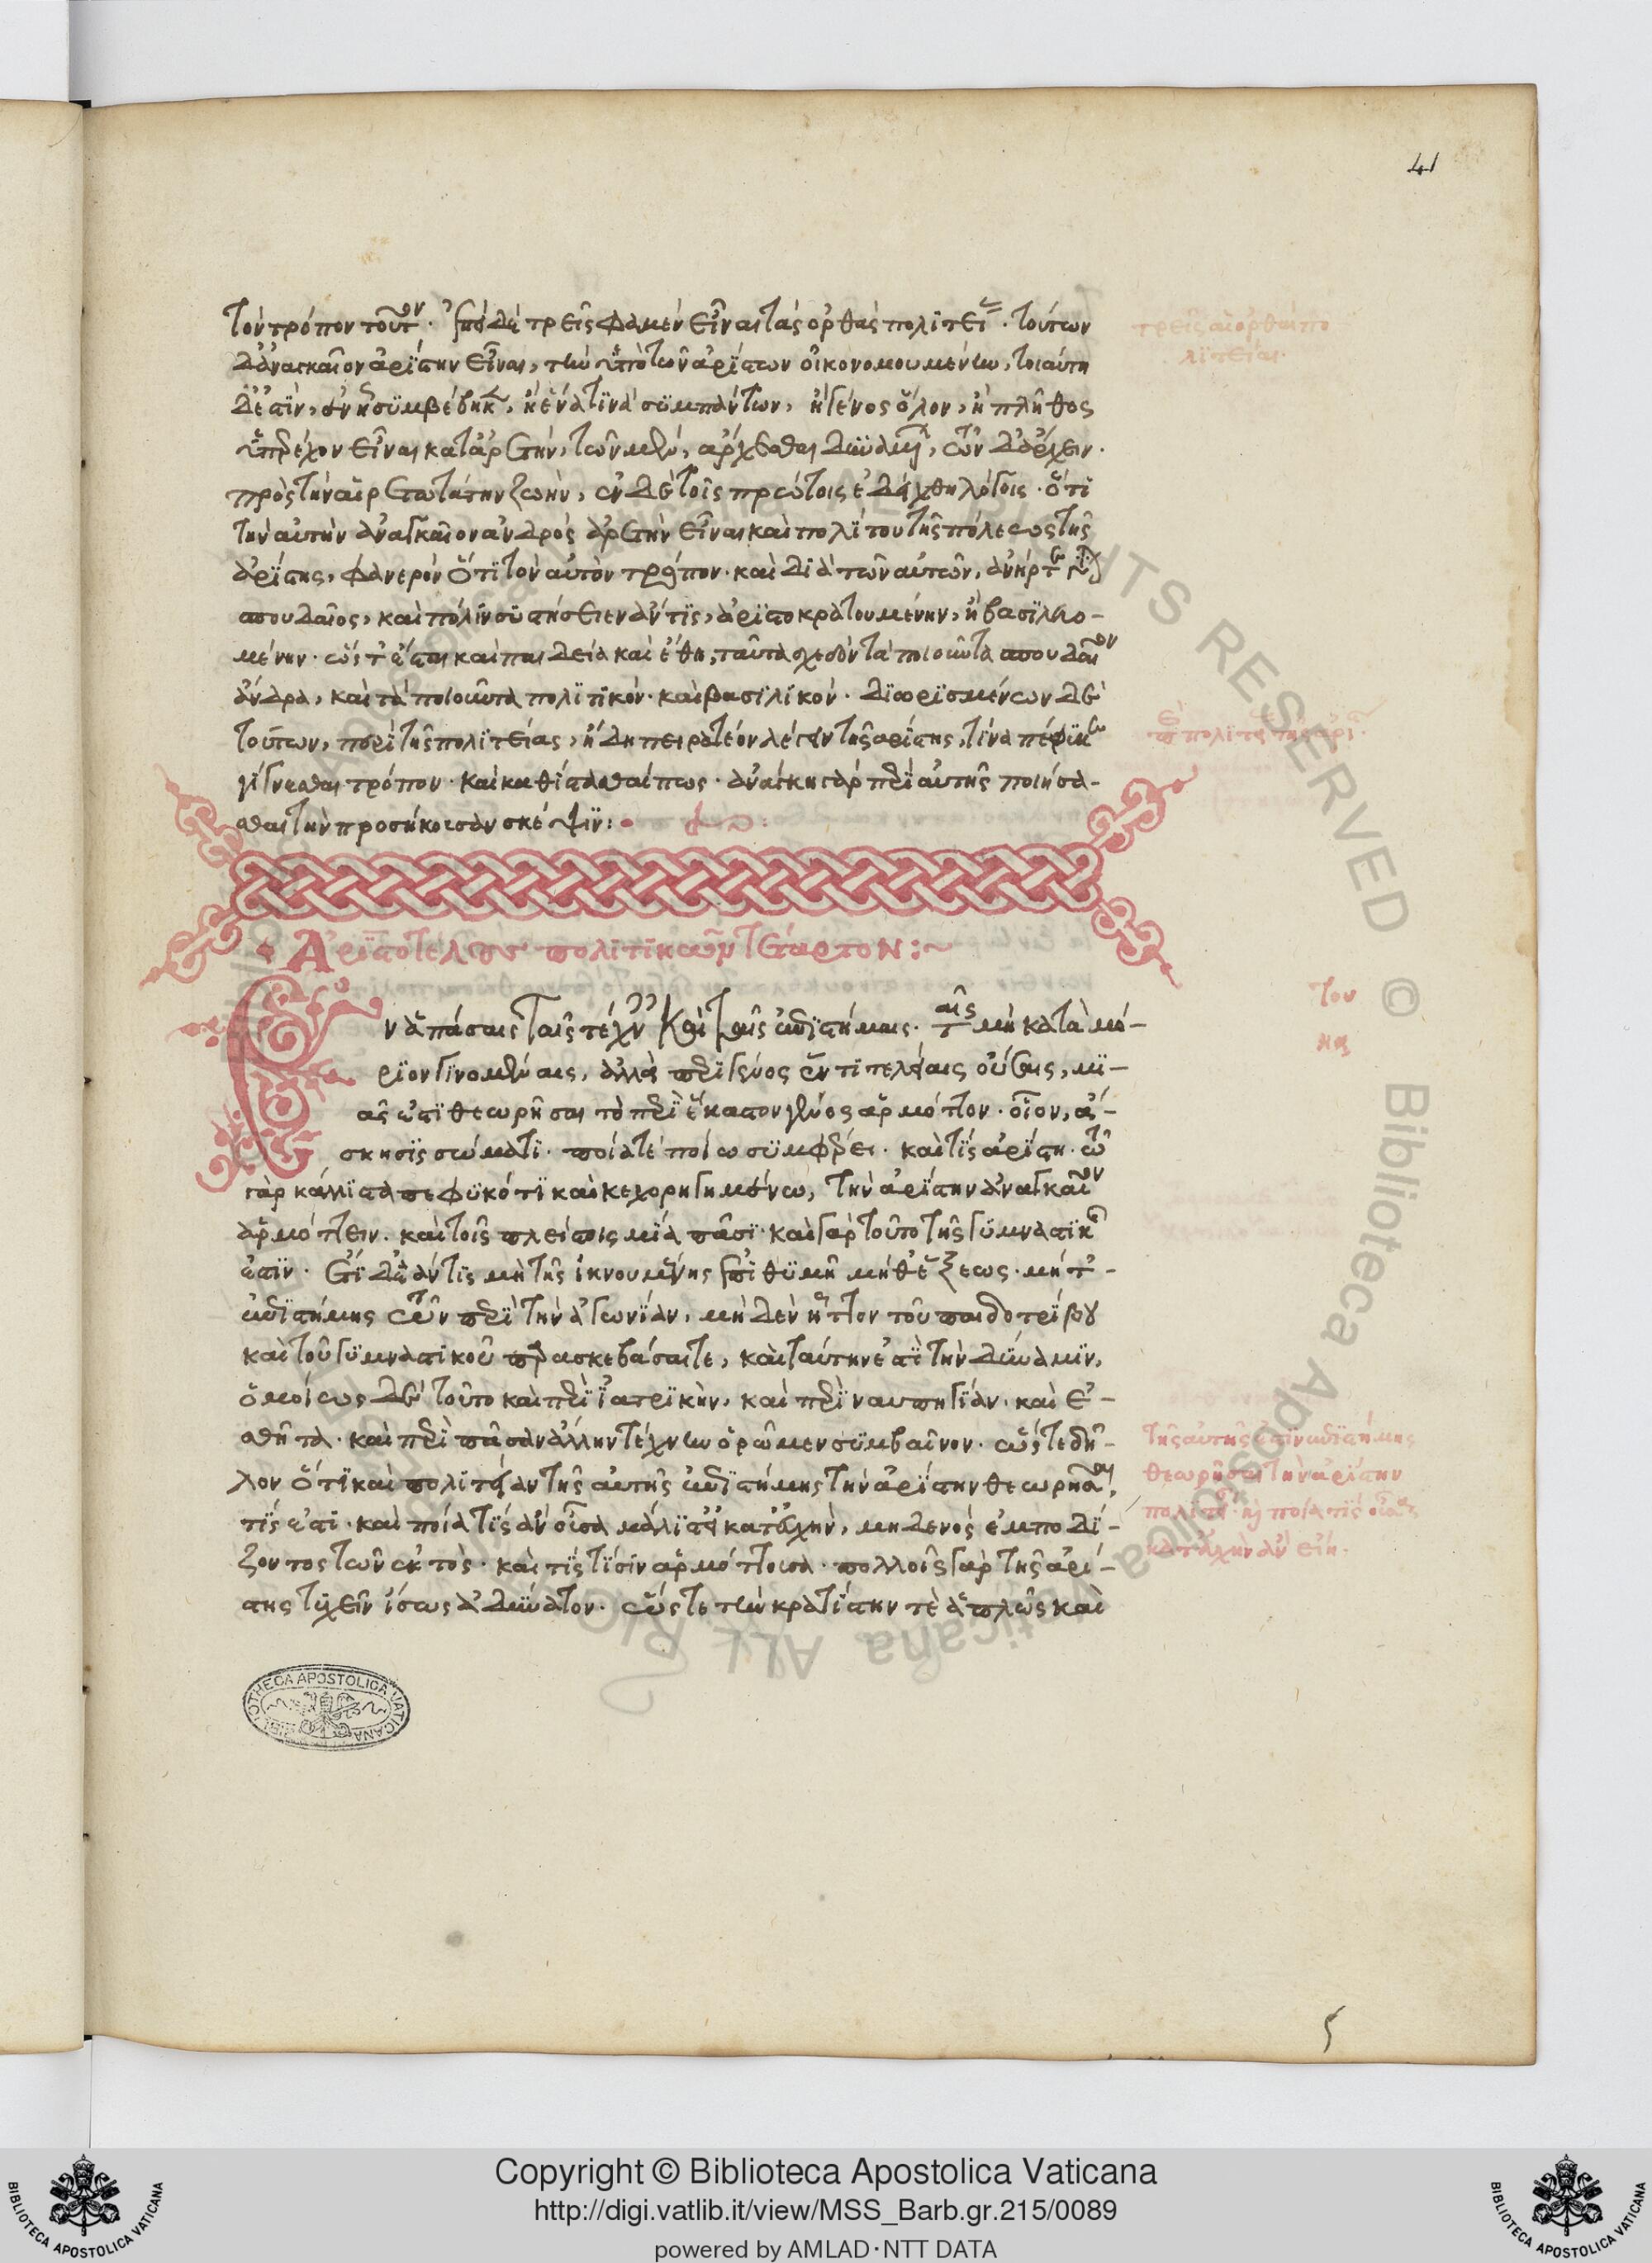 41
τὸν τρόπον τοῦτον· ἐπεὶ δὲ τρεῖς φαμὲν εἶναι τὰς ὀρθὰς πολιτείας· τούτων
δ' ἀναγκαῖον ἀρίστην εἶναι, τὴν ὑπὸ τῶν ἀρίστων οἰκονομουμένην, τοιαύτη
δ' ἐστὶν, ἐν ᾗ συμβέβηκεν, ἢ ἕνα τινὰ συμπάντων, ἢ γένος ὅλον, ἢ πλῆθος
ὑπερέχον εἶναι κατ' ἀρετήν, τῶν μὲν, ἄρχεσθαι δυναμένων, τῶν δ' ἄρχειν·
πρὸς τὴν αἱρετωτάτην ζωὴν, ἐν δὲ τοῖς πρώτοις ἐδείχθη λόγοις· ὅτι
τὴν αὐτὴν ἀναγκαῖον ἀνδρὸς ἀρετὴν εἶναι καὶ πολίτου τῆς πόλεως τῆς
ἀρίστης, φανερὸν ὅτι τὸν αὐτὸν τρόπον· καὶ διὰ τῶν αὐτῶν, ἀνήρ τε γίνεται
σπουδαῖος, καὶ πόλιν συστήσειεν ἄν τις, ἀριστοκρατουμένην, ἢ βασιλευο-
μένην· ὥστ' ἔσται καὶ παιδεία καὶ ἔθη, ταῦτα σχεδὸν τὰ ποιοῦντα σπουδαῖον
ἄνδρα, καὶ τὰ ποιοῦντα πολιτικόν· καὶ βασιλικόν· διωρισμένων δὲ
τούτων, περὶ τῆς πολιτείας, ἤδη πειρατέον λέγειν τῆς ἀρίστης, τίνα πέφυκε
γίγνεσθαι τρόπον· καὶ καθίστασθαί πως· ἀνάγκη γὰρ περὶ αὐτῆς ποιήσα-
σθαι τὴν προσήκουσαν σκέψιν:
Ἀριστοτέλους πολιτικῶν τέταρτον:~
Ἐν ἁπάσαις ταῖς τέχναις καὶ ταῖς ἐπιστήμαις· ταῖς μὴ κατὰ μό-
ριον γινομέναις, ἀλλὰ περὶ γένος ἕν τι τελείαις οὔσαις, μι-
ᾶς ἐστὶ θεωρῆσαι τὸ περὶ ἕκαστον γένος ἁρμόττον· οἷον, ἄ-
σκησις σώματι· ποία τε ποίω συμφέρει· καὶ τίς ἀρίστη· τῶ
γὰρ κάλλιστα πεφυκότι καὶ κεχορηγημένω, τὴν ἀρίστην ἀναγκαῖον
ἁρμόττειν. καὶ τοῖς πλείστοις μία πᾶσι· καὶ γὰρ τοῦτο τῆς γυμναστικῆς
ἐστίν· ἔτι δ' ἐάν τις μὴ τῆς ἱκνουμένης ἐπιθυμῆ μήθ' ἕξεως· μήτ'-
ἐπιστήμης τῶν περὶ τὴν ἀγωνίαν, μηδὲν ἧττον τοῦ παιδοτρίβου
καὶ τοῦ γυμναστικοῦ παρασκευάσαι τε, καὶ ταύτην ἐστὶ τὴν δύναμιν,
ὁμοίως δὲ τοῦτο καὶ περὶ ἰατρικὴν, καὶ περὶ ναυπηγίαν· καὶ ἐ-
σθῆτα· καὶ περὶ πᾶσαν ἄλλην τέχνην ὁρῶμεν συμβαῖνον· ὥστε δῆ-
λον ὅτι καὶ πολιτείαν τῆς αὐτῆς ἐπιστήμης τὴν ἀρίστην θεωρῆσαι,
τίς ἐστι· καὶ ποία τίς ἂν οὖσα μάλιστ' εἴη κατ' εὐχὴν, μηδενὸς ἐμποδί-
ζοντος τῶν ἐκτὸς· καὶ τίς τίσιν ἁρμόττουσα· πολλοῖς γὰρ τῆς ἀρί-
στης τυχεῖν ἴσως ἀδύνατον· ὥστε τὴν κρατίστην τὲ ἁπλῶς καὶ
τρεῖς αἱ ὀρθαὶ πο
λιτεῖαι·
τῆς αὐτῆς ἐστὶν ἐπιστήμης
θεωρῆσαι τὴν ἀρίστην
BIBLIOTHECA APOSTOLICA VATICANA
Biblioteca Apostolica Vaticana ALL RIGHTS RESERVED ©
Copyright © Biblioteca Apostolica Vaticana
http://digi.vatlib.it/view/MSS_Barb.gr.215/0089
powered by AMLAD·NTT DATA
BIBLIOTECA APOSTOLICA VATICANA
BIBLIOTECA APOSTOLICA VATICANA